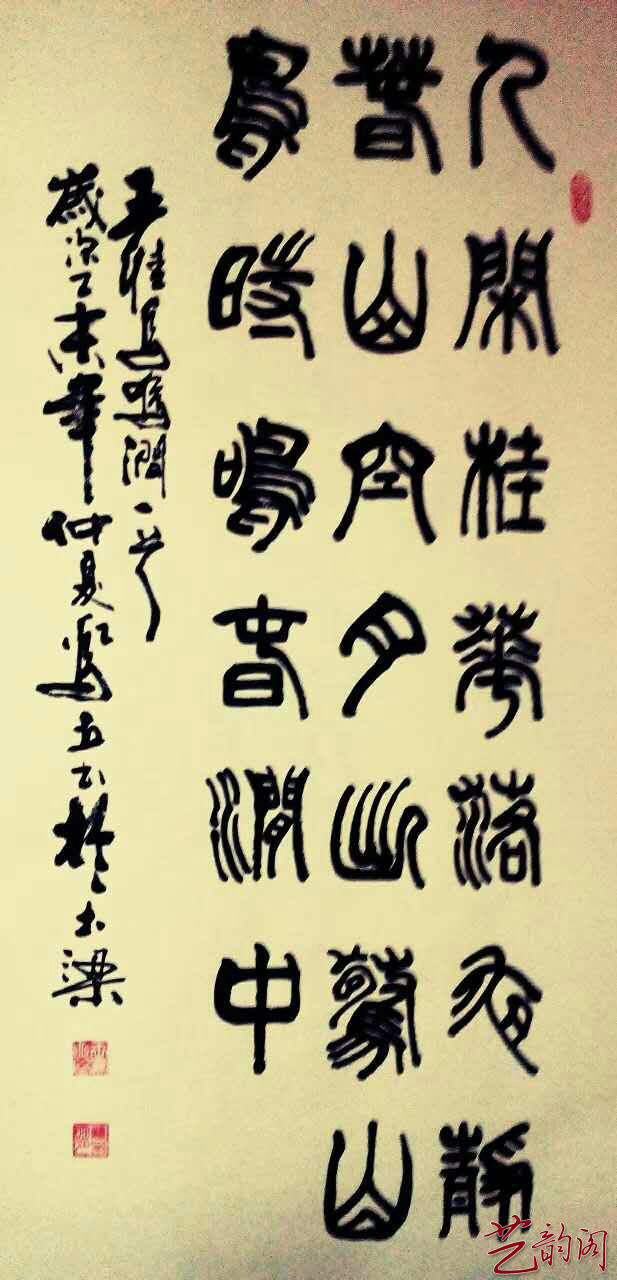 人閑桂華落夜靜
春山空月出驚山
鳥時鳴春澗中
王維鳥鳴澗一首
歲次乙未年仲夏
艺韵阁